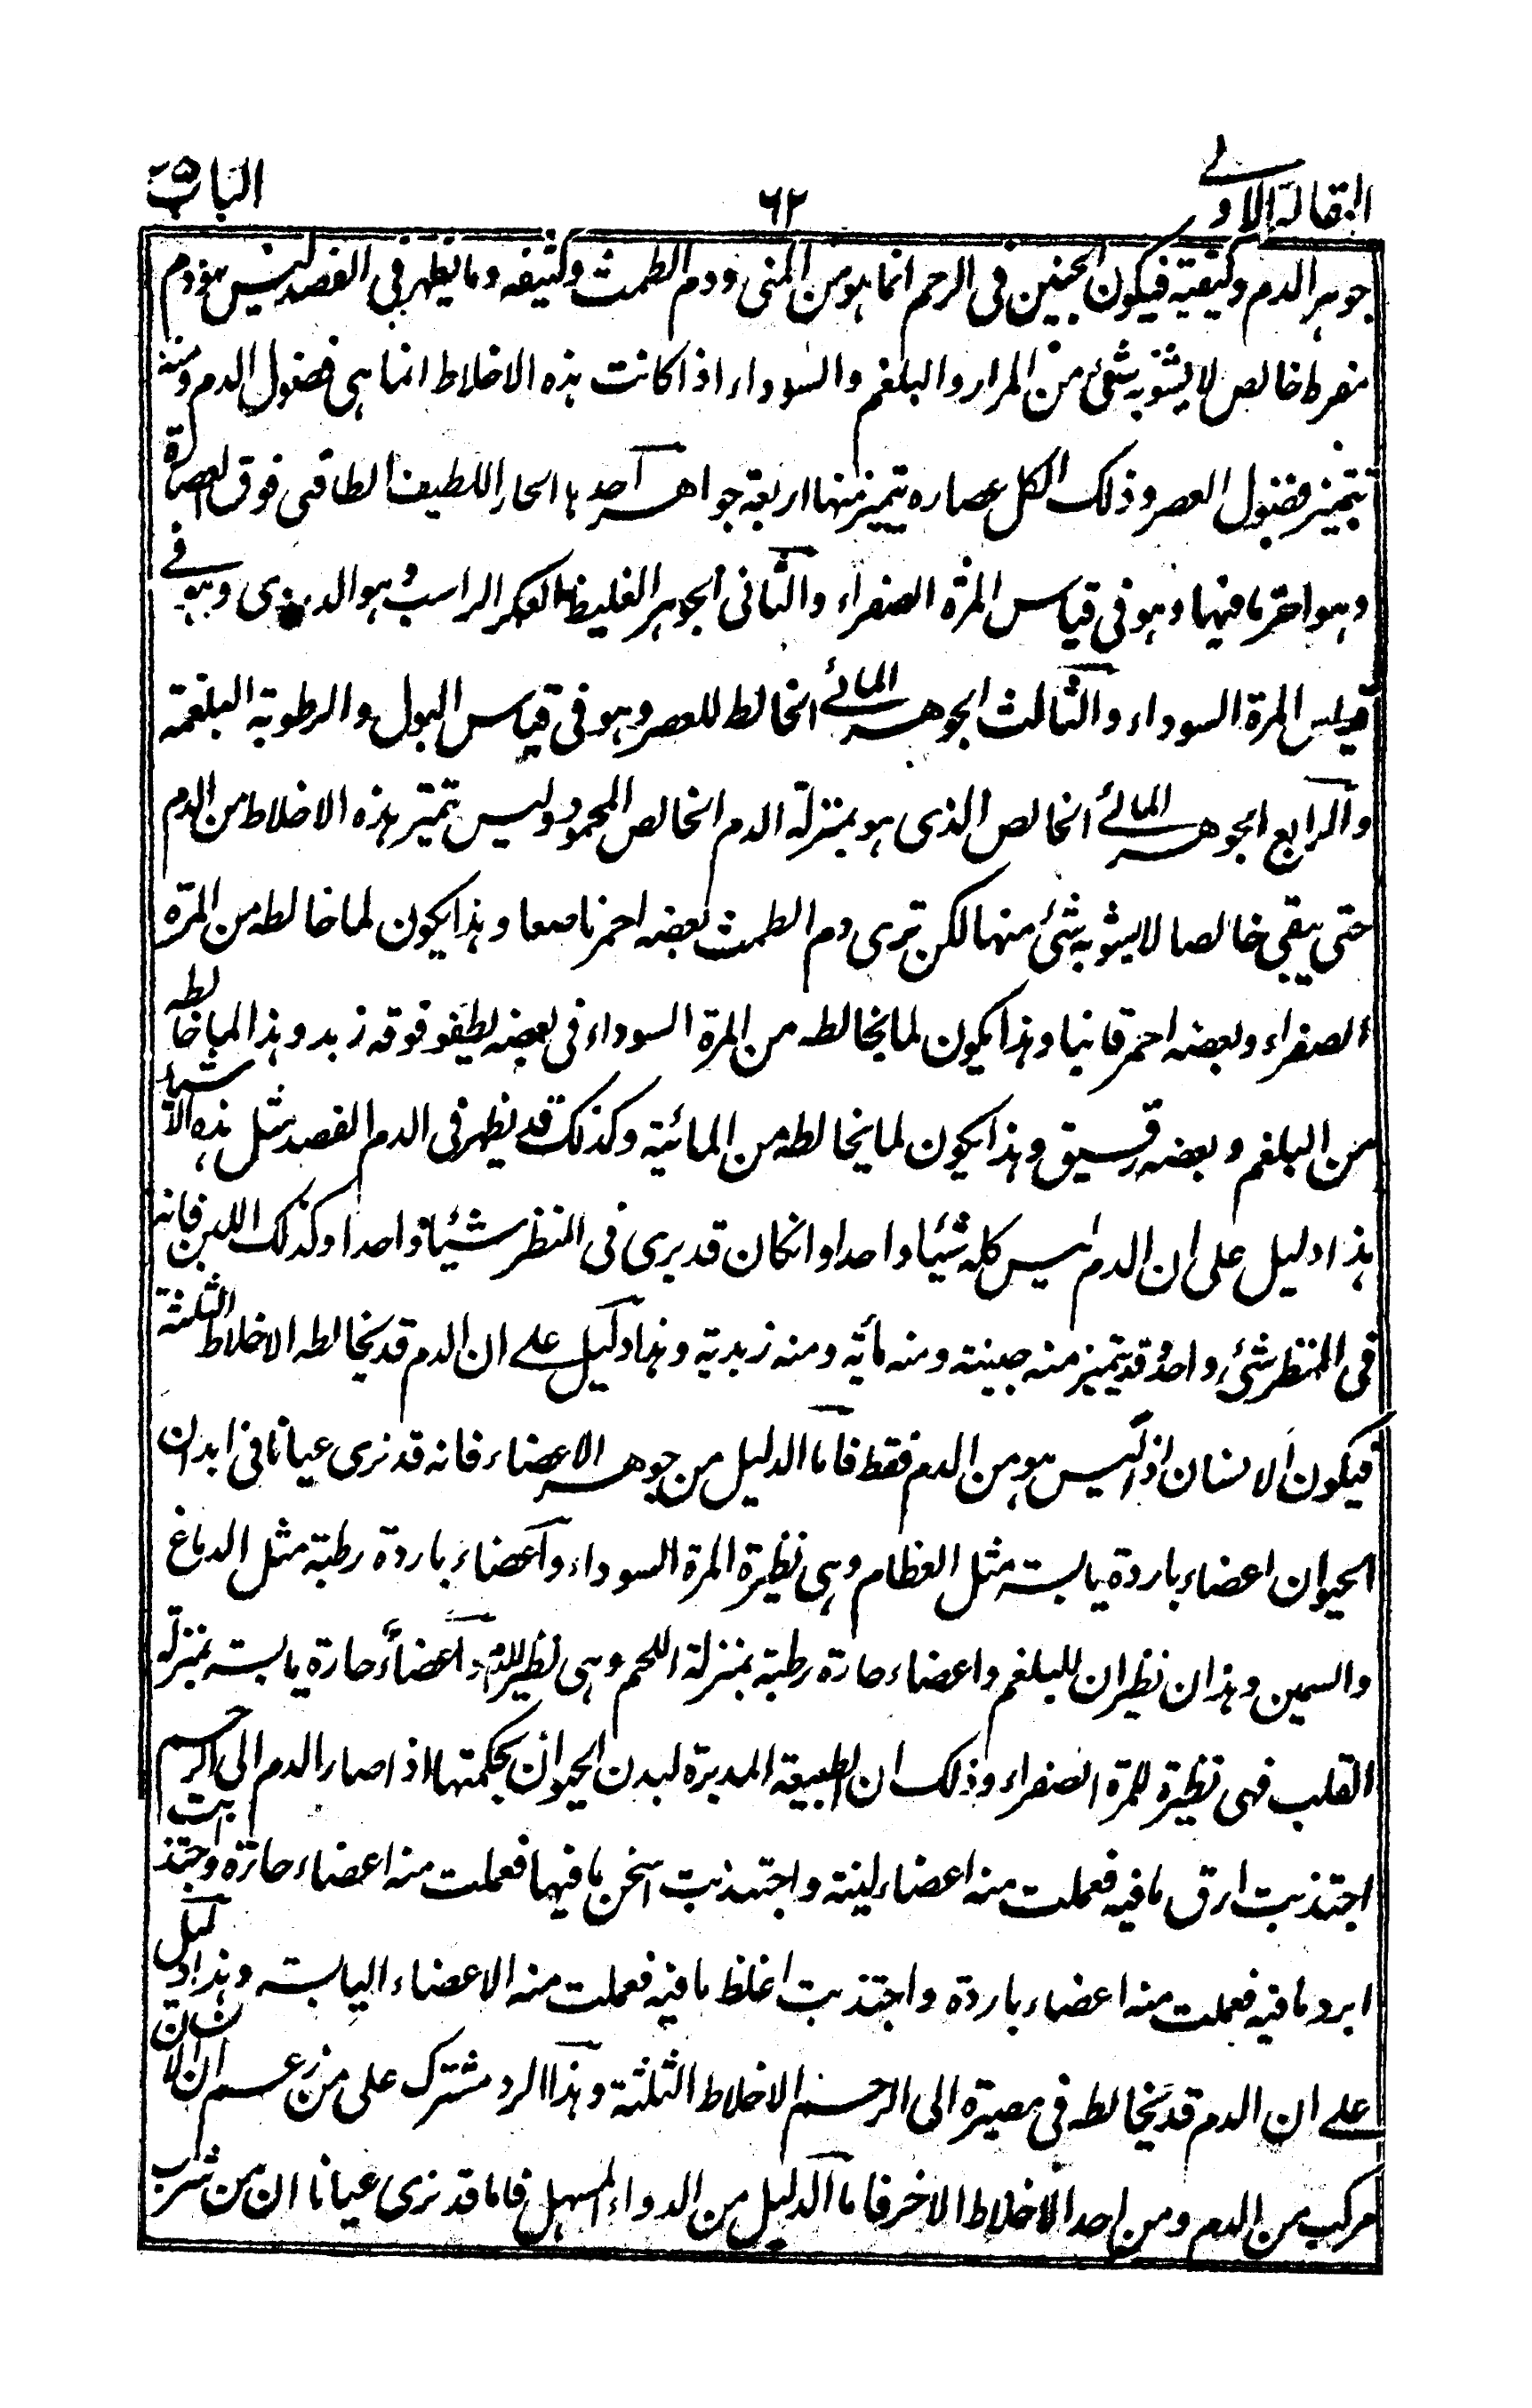 المقالة الاولى
٦٢
الباب ٥
جوهر الدم وكيفيته فيكون الجنين فى الرحم انما هو من المنى ودم الطمث وكثيفه وما يظهر فى الفصد ليس هو دم
مفرط خالص لا يشوبه شئ من المرار والبلغم والسوداء اذا كانت هذه الاخلاط انما هى فضول الدم ومنه
تتميز فضول العصر وذلك الكل عصاره يتميز منها اربعة جواهر احدها الحار اللطيف الطافى فوق العصارة
وهو احر ما فيها وهو فى قياس المرة الصفراء والثانى الجوهر الغليظ العكر الراسب وهو الدردى وهو فى
قياس المرة السوداء والثالث الجوهر المائى المخالط للعصر وهو فى قياس البول والرطوبة البلغمة
والرابع الجوهر المائى الخالص الذى هو بمنزلة الدم الخالص المحمود وليس تتميز هذه الاخلاط من الدم
حتى يبقى خالصا لا يشوبه شئ منها لكن ترى دم الطمث بعضه احمر ناصعا وهذا يكون لما خالطه من المرة
الصفراء وبعضه احمر قانيا وهذا يكون لما يخالطه من المرة السوداء فى بعضه يطفو فوقه زبد وهذا لما خالطه
من البلغم وبعضه رقيق وهذا يكون لما يخالطه من المائية وكذلك قد يظهر فى الدم الفصد مثل هذه الاشياء
هذا دليل على ان الدم ليس كله شيئا واحدا وانكان قد يرى فى المنظر شيئا واحدا وكذلك اللبن فانه
فى المنظر شئ واحد وقد يتميز منه جبنية ومنه مائية ومنه زبدية وهذا دليل على ان الدم قد يخالطه الاخلاط الثلثة
فيكون الانسان اذا ليس هو من الدم فقط فاما الدليل من جوهر الاعضاء فانه قد نرى عيانا فى ابدان
الحيوان اعضاء باردة يابسة مثل العظام وهى نظيرة المرة السوداء واعضاء باردة رطبة مثل الدماغ
والسمين وهذان نظيران للبلغم واعضاء حارة رطبة بمنزلة اللحم وهى نظير للدم واعضاء حارة يابسة بمنزلة
القلب فهى نظيرة للمرة الصفراء وذلك ان الطبيعة المدبرة لبدن الحيوان بحكمتها اذا صار الدم الى الرحم
اجتذبت ارق ما فيه فعملت منه اعضاء لينة واجتذبت اسخن ما فيها فعملت منه اعضاء حارة واجتذبت
ابرد ما فيه فعملت منه اعضاء باردة واجتذبت اغلظ ما فيه فعملت منه الاعضاء اليابسة وهذا دليل
على ان الدم قد يخالطه فى مصيرة الى الرحم الاخلاط الثلثة وهذا الرد مشترك على من زعم ان الانسان
مركب من الدم ومن احد الاخلاط الاخر فاما الدليل من الدواء المسهل فاما قد نرى عيانا ان من شرب